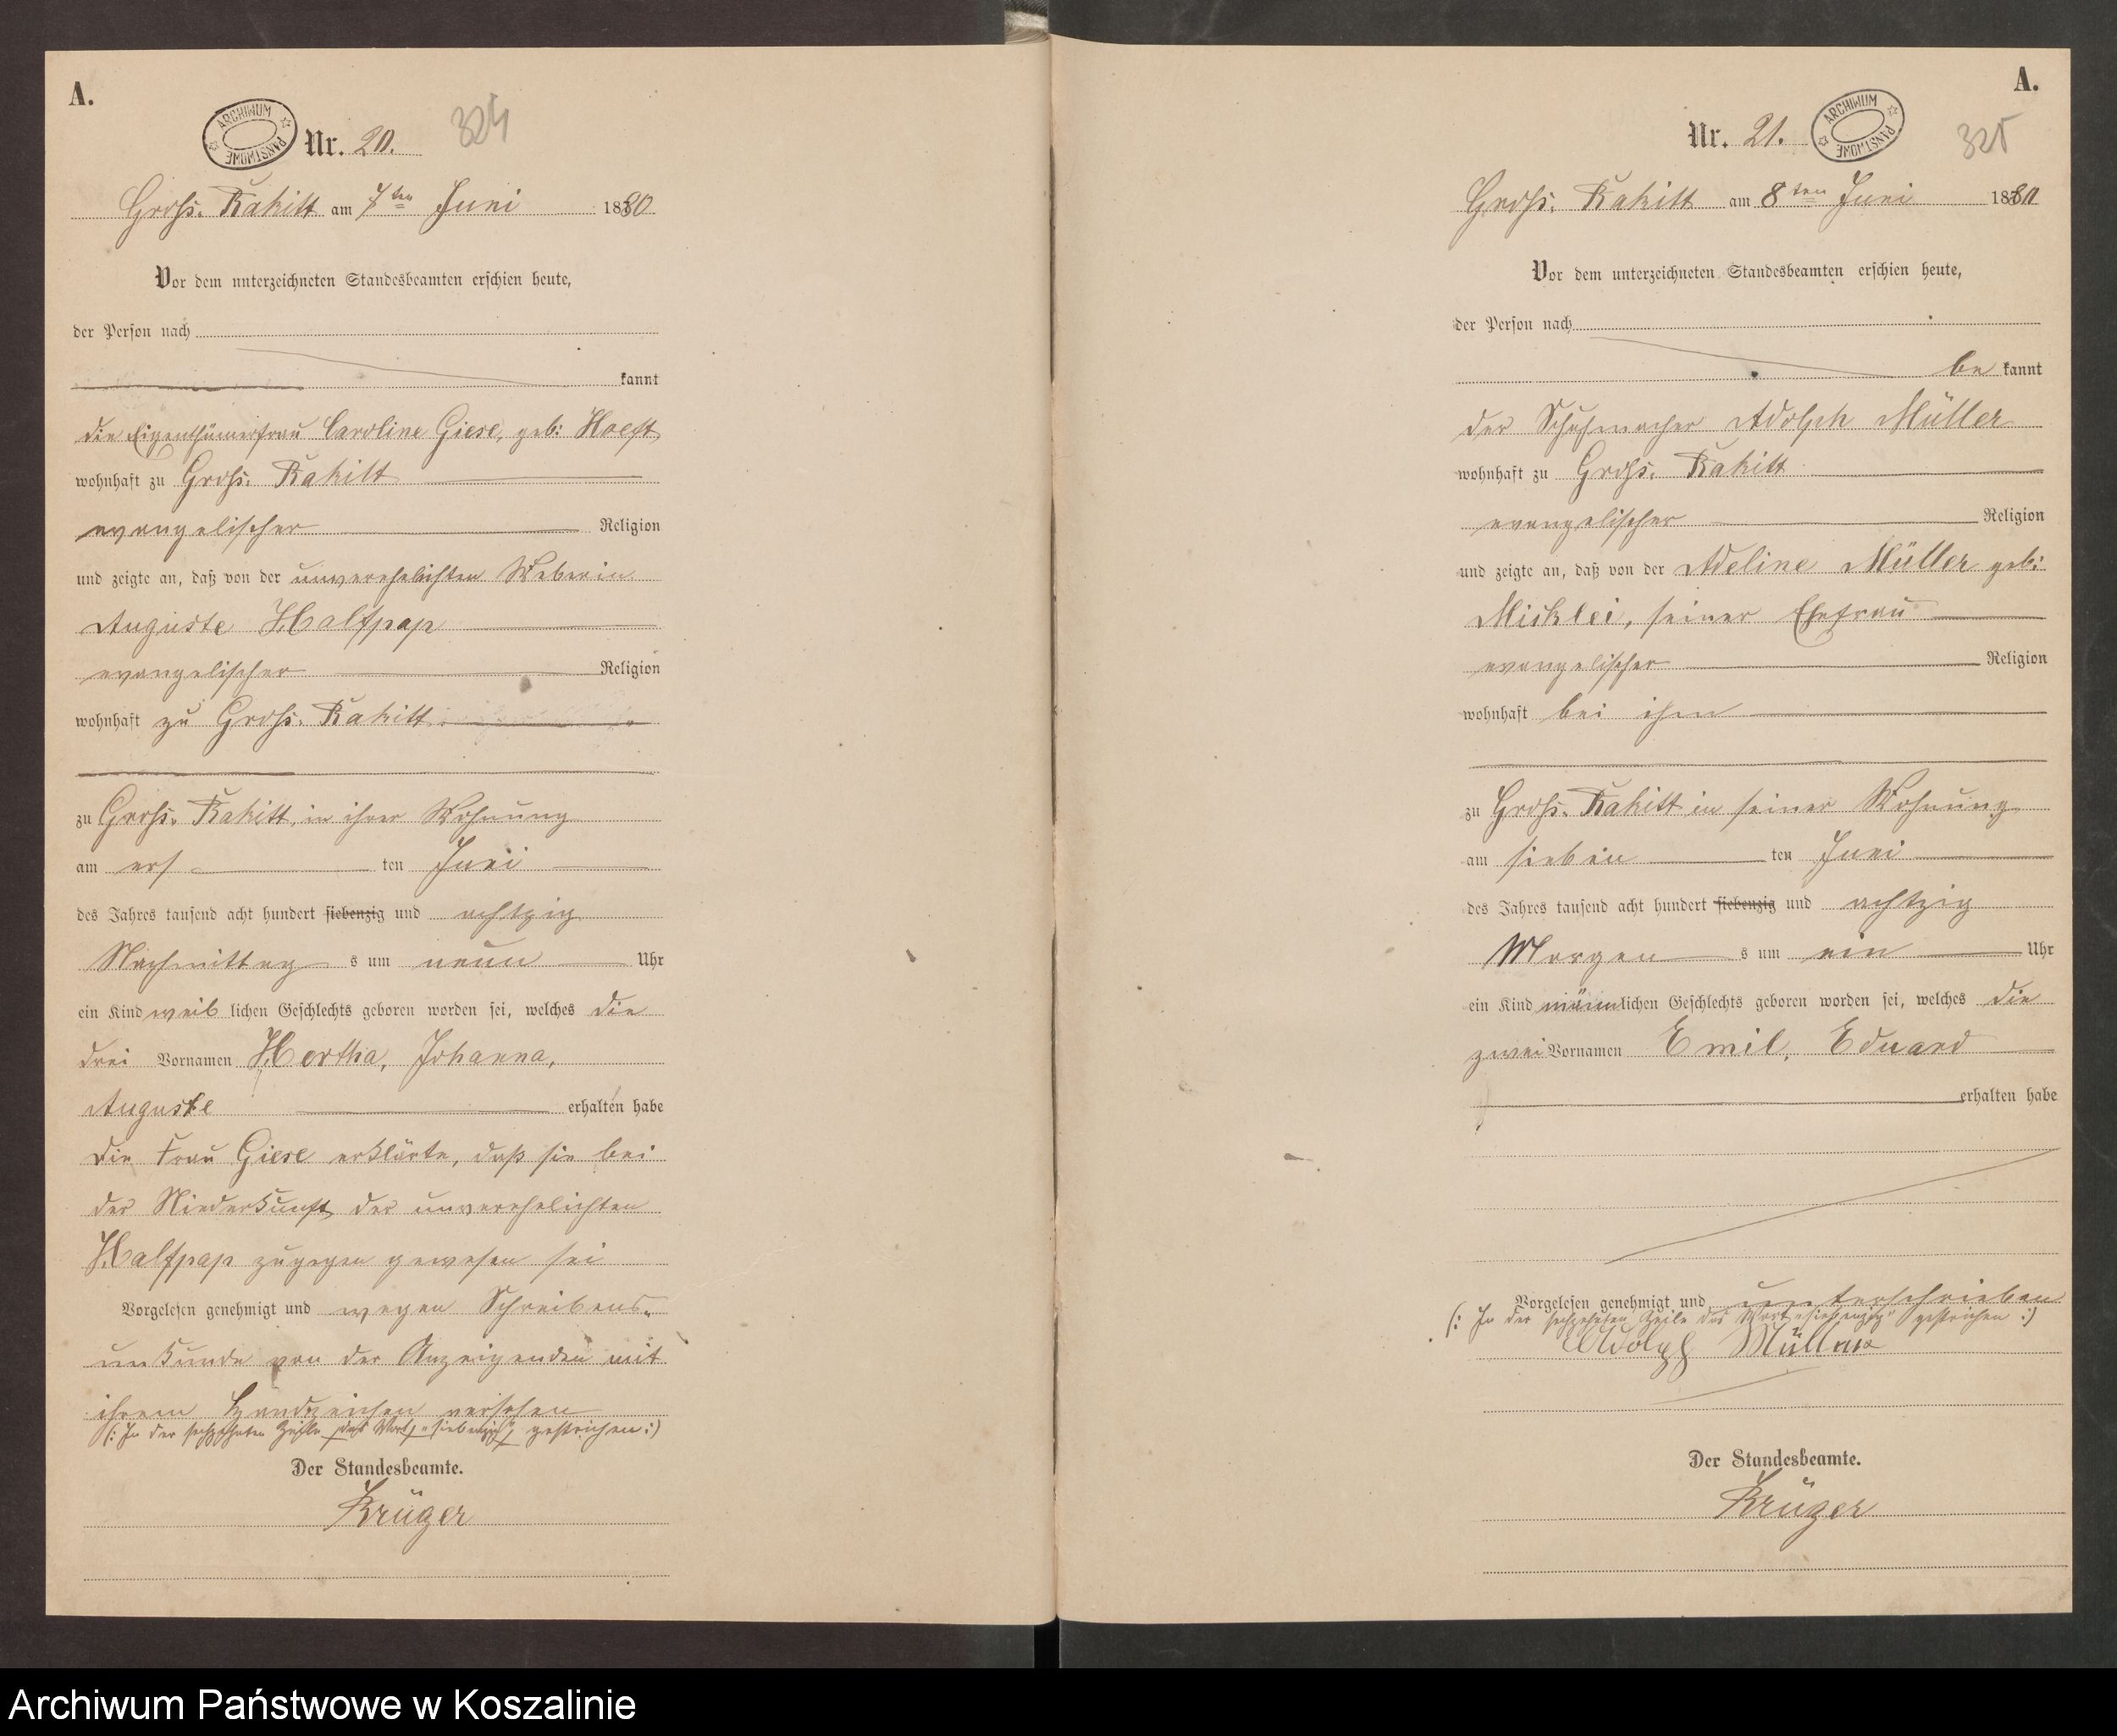 A.
ARCHIWUM PAŃSTWOWE
Nr. 20.
324
Groß-Rakitt am 7ten Juni 1880
Vor dem unterzeichneten Standesbeamten erschien heute,
der Person nach
kannt
die Eigenthümerfrau Caroline Giese, geb: Hoeft
wohnhaft zu Groß. Rakitt
evangelischer Religion
und zeigte an, daß von der unverehelichten Weberin
Auguste Halfpap
evangelischer Religion
wohnhaft zu Groß. Rakitt
zu Groß. Rakitt, in ihrer Wohnung
am ers ten Juni
des Jahres tausend acht hundert siebenzig und achtzig
Nachmittag s um neun Uhr
ein Kind weib lichen Geschlechts geboren worden sei, welches die
drei Vornamen Hertha, Johanna,
Auguste erhalten habe
Die Frau Giese erklärte, daß sie bei
der Niederkunft der unverehelichten
Halfpap zugegen gewesen sei
Vorgelesen genehmigt und wegen Schreibens-
unkunde von der Anzeigenden mit
ihrem Handzeichen versehen
(: In der sechzehnten Zeile das Wort „siebenzig“ gestrichen :)
Der Standesbeamte.
Krüger
A.
Nr. 21.
ARCHIWUM PAŃSTWOWE
325
Groß. Rakitt am 8ten Juni 1880
Vor dem unterzeichneten Standesbeamten erschien heute,
der Person nach
be kannt
der Schuhmacher Adolph Müller
wohnhaft zu Groß. Rakitt
evangelischer Religion
und zeigte an, daß von der Adeline Müller geb:
Mischlei, seiner Ehefrau
evangelischer Religion
wohnhaft bei ihm
zu Groß. Rakitt in seiner Wohnung
am sieben ten Juni
des Jahres tausend acht hundert siebenzig und achtzig
Morgen s um ein Uhr
ein Kind männlichen Geschlechts geboren worden sei, welches die
zwei Vornamen Emil, Eduard
erhalten habe
Vorgelesen genehmigt und unterschrieben
(: In der sechzehnten Zeile das Wort „siebenzig“ gestrichen :)
Adolph Müller
Der Standesbeamte.
Krüger
Archiwum Państwowe w Koszalinie